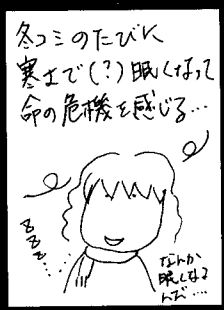 冬コミのたびに
寒さで(?)眠くなって
命の危機を感じる…
zzz…
なんか
眠くなる
んだ…